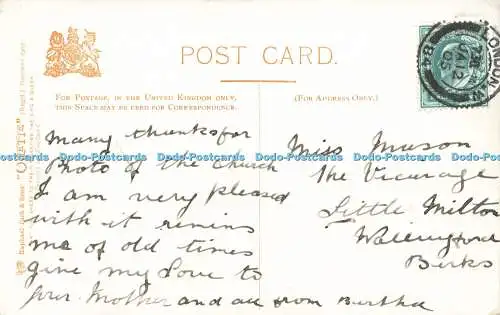 POST CARD.
FOR POSTAGE, IN THE UNITED KINGDOM ONLY,
THIS SPACE MAY BE USED FOR CORRESPONDENCE.
(FOR ADDRESS ONLY.)
LONDON. W.
JA 12
84
Raphael Tuck & Sons' "OILETTE" [Regd.] Postcard
Many thanks for
Photo of the Church
I am very pleased
with it remins
me of old times
give my love to
your Mother and all from Bertha
Miss Mason
The Vicarage
Little Milton
Wallingford
Berks
Dodo Postcards Dodo Postcards Dodo Postcards Dodo Postcards Dodo Postcards